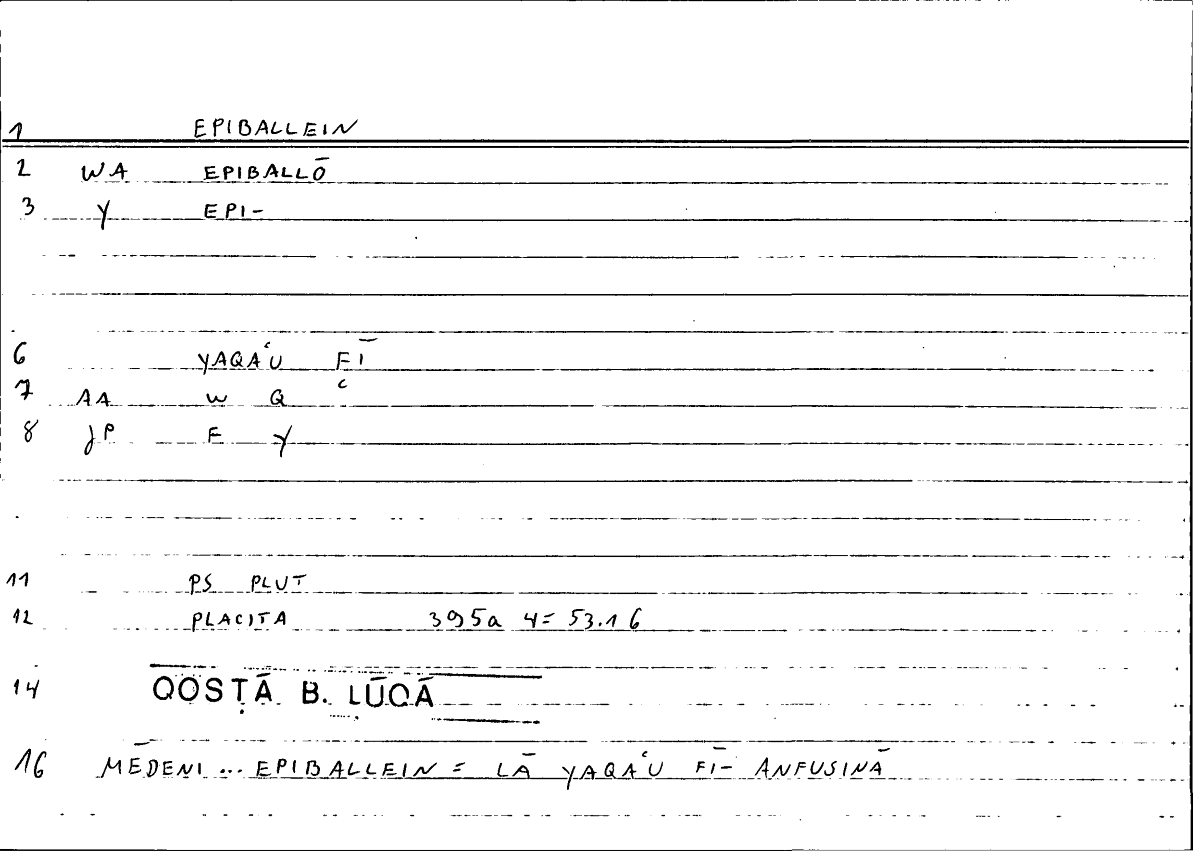 1 EPIBALLEIN
2 WA EPIBALLŌ
3 Y EPI-
6 YAQAʿU FĪ
7 AA W Q ʿ
8 JP F Y
11 PS PLUT
12 PLACITA 395a 4= 53.16
14 QOSṬĀ B. LŪQĀ
16 MĒDENI ... EPIBALLEIN = LĀ YAQAʿU FĪ- ANFUSINĀ